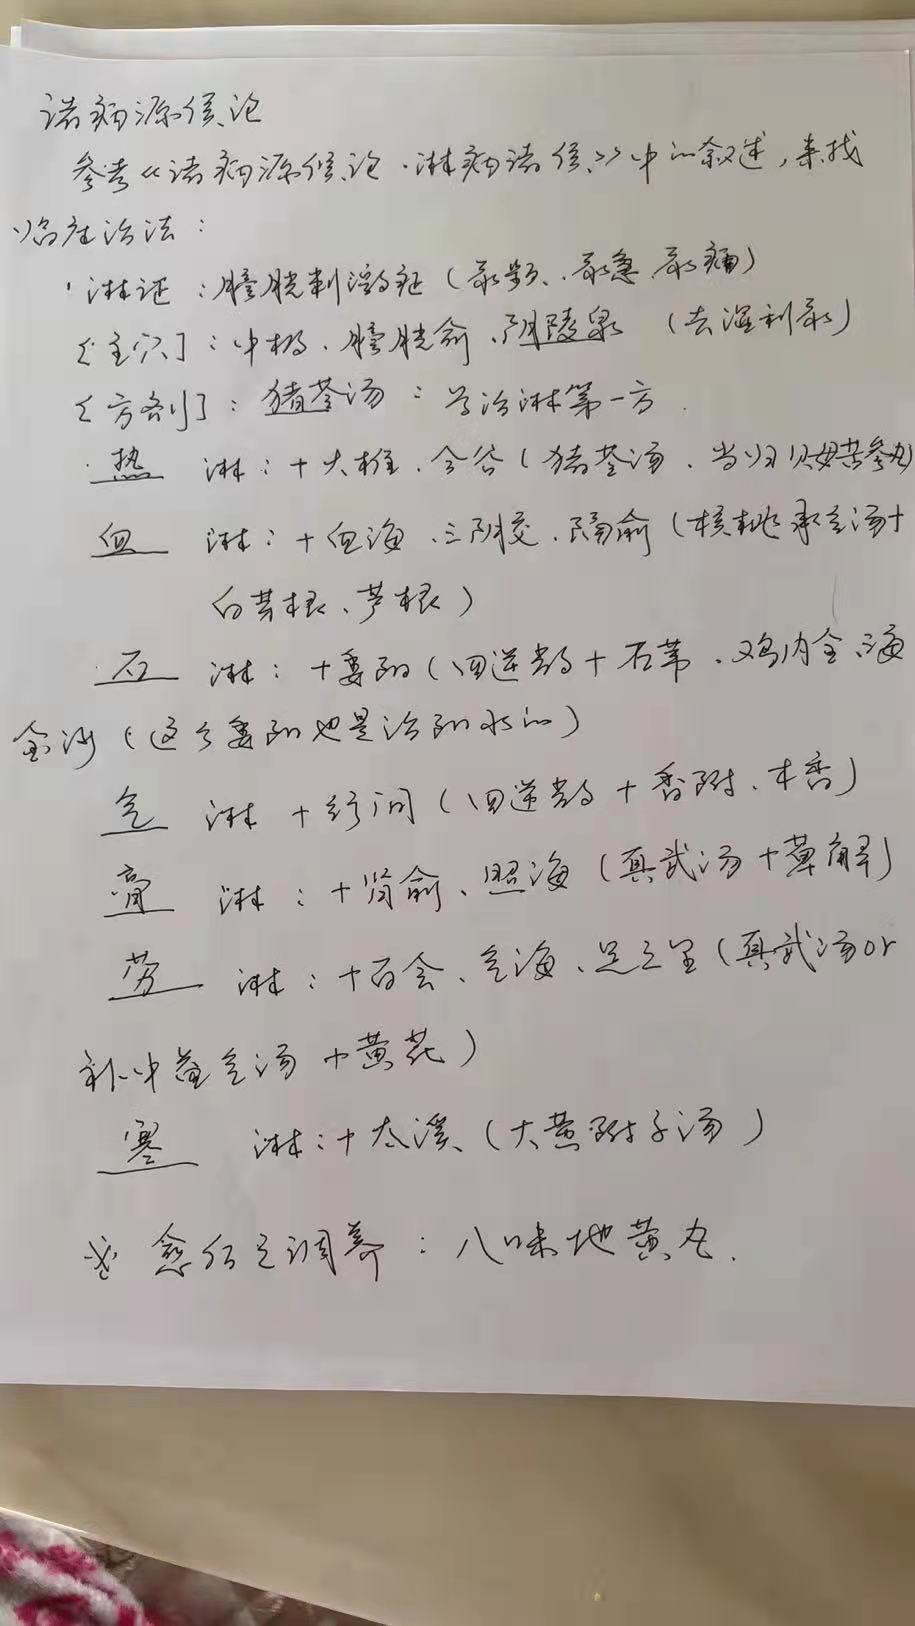 诸病源候论
参考《诸病源候论·淋病诸候》中的叙述,来找
临床治法:
淋证:膀胱刺激征(尿频、尿急、尿痛)
〔主穴〕:中极、膀胱俞、阴陵泉(去湿利尿)
〔方剂〕:猪苓汤:为治淋第一方.
热淋:+大椎、合谷(猪苓汤、当归贝母苦参丸)
血淋:+血海、三阴交、隔俞(桃核承气汤+
白茅根、芦根)
石淋:+委阳(四逆散+石苇、鸡内金、海
金沙(这个委阳也是治阳水的)
气淋+行间(四逆散+香附、木香)
膏淋:+肾俞、照海(真武汤+萆薢)
劳淋:+百会、气海、足三里(真武汤or
补中益气汤+黄芪)
寒淋:+太溪(大黄附子汤)
※愈后之调养:八味地黄丸.